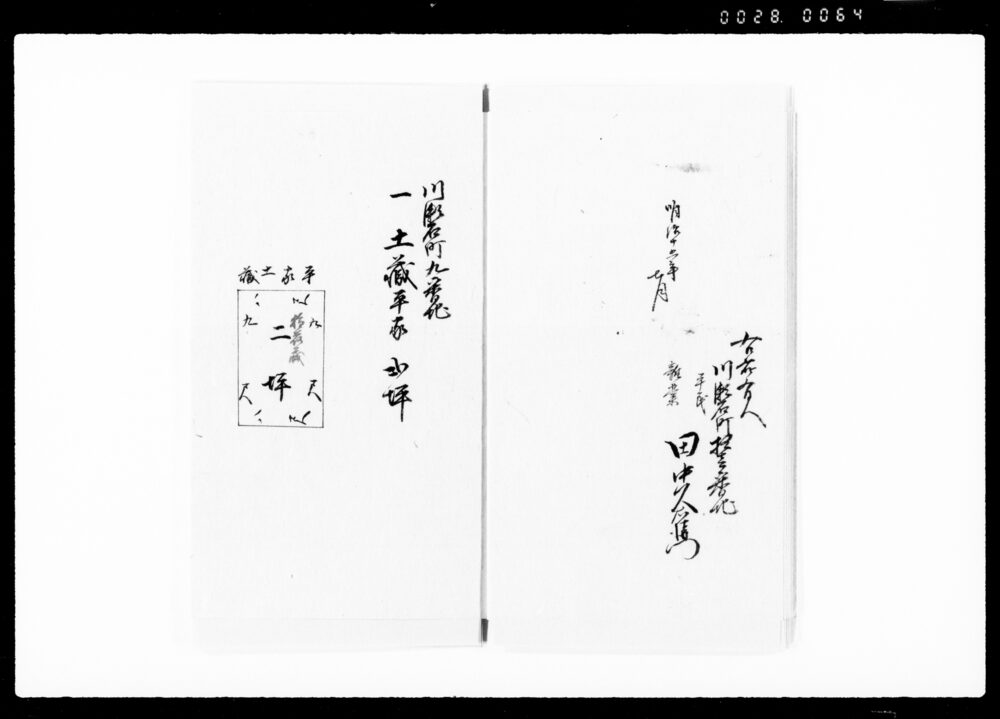 0028. 0064
明治十六年
七月
右所有人
川瀬石町拾三番地
平民
雑業
田中久右衛門
川瀬石町九番地
一 土蔵平家 弐坪
平家土蔵
九尺
二坪
九尺